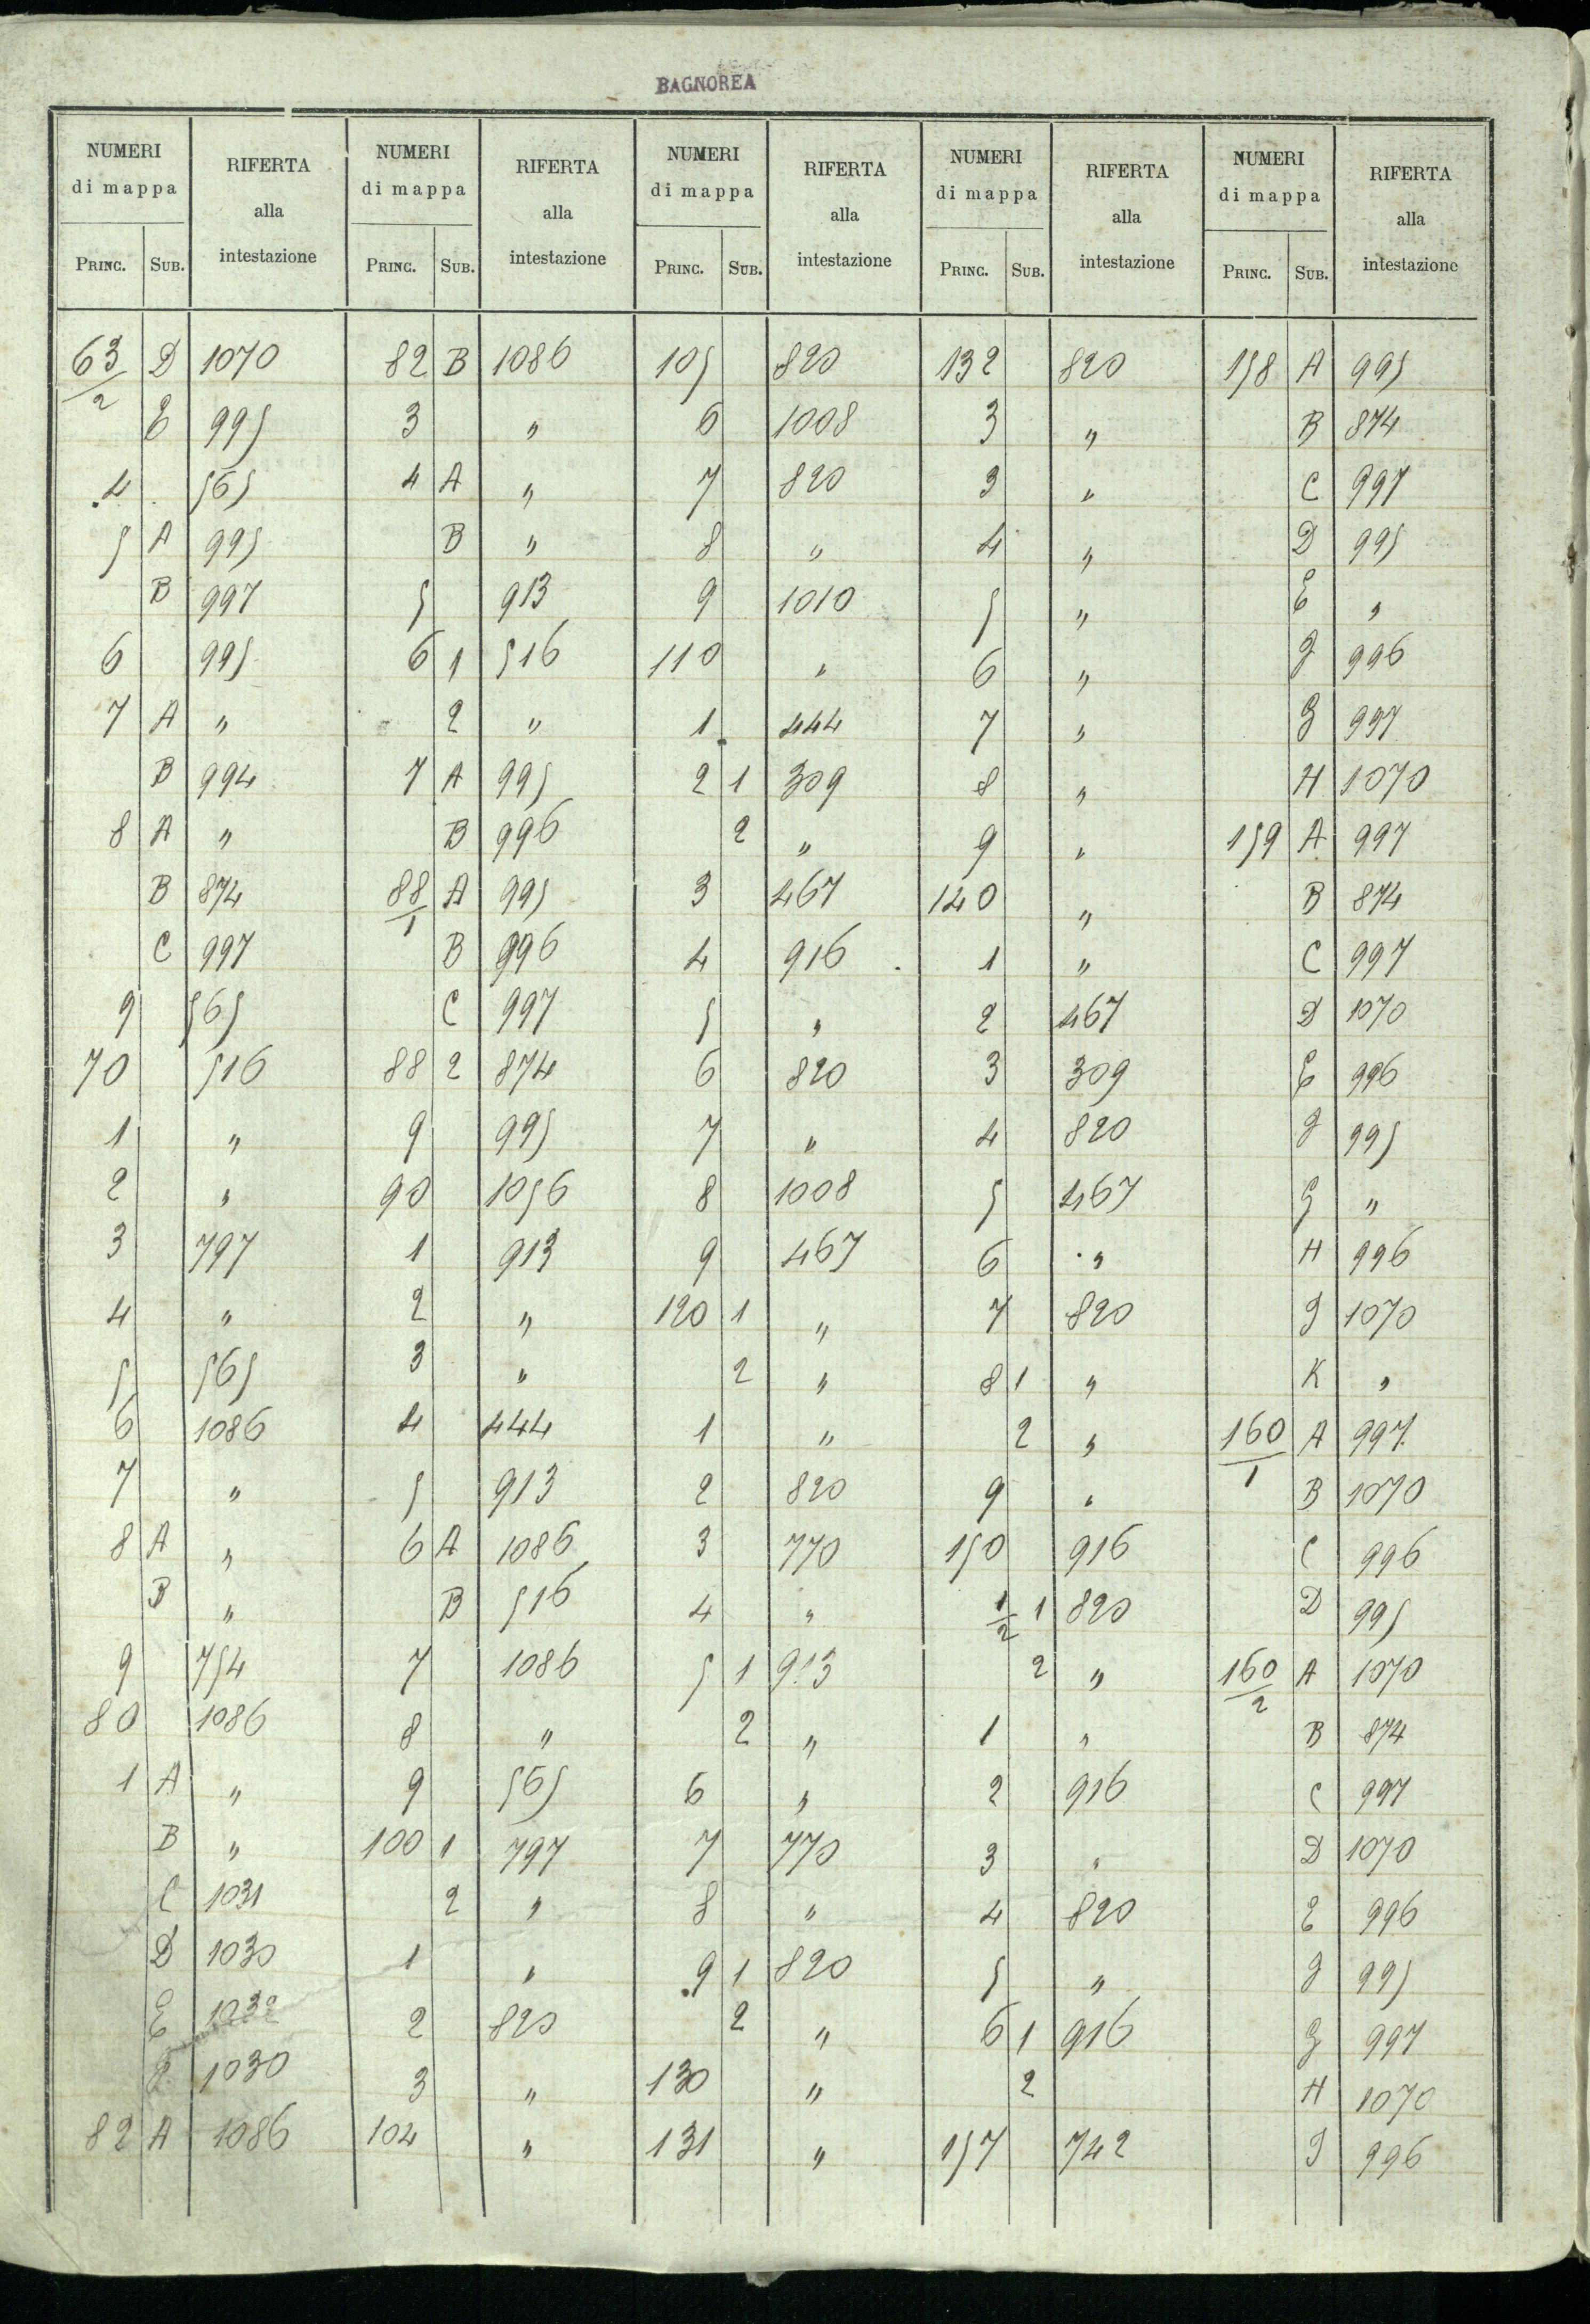 BAGNOREA
NUMERI di mappa RIFERTA alla intestazione NUMERI di mappa RIFERTA alla intestazione NUMERI di mappa RIFERTA alla intestazione NUMERI di mappa RIFERTA alla intestazione NUMERI di mappa RIFERTA alla intestazione
PRINC. SUB. PRINC. SUB. PRINC. SUB. PRINC. SUB. PRINC. SUB.
63/2 D 1070 82 B 1086 105 820 132 820 158 A 995
E 995 3 " 6 1008 3 " B 874
4 565 4 A " 7 820 3 " C 997
5 A 995 B " 8 " 4 " D 995
B 997 5 913 9 1010 5 " E "
6 995 6 1 516 110 " 6 " F 996
7 A " 2 " 1 444 7 " G 997
B 994 7 A 995 2 1 309 8 " H 1070
8 A " B 996 2 " 9 " 159 A 997
B 874 88/1 A 995 3 467 140 " B 874
C 997 B 996 4 916 1 " C 997
9 565 C 997 5 " 2 467 D 1070
70 516 88 2 874 6 820 3 309 E 996
1 " 9 995 7 " 4 820 F 995
2 " 90 1056 8 1008 5 467 G "
3 797 1 913 9 467 6 " H 996
4 " 2 " 120 1 " 7 820 I 1070
5 565 3 " 2 " 8 1 " K "
6 1086 4 444 1 " 2 " 160/1 A 997
7 " 5 913 2 820 9 " B 1070
8 A " 6 A 1086 3 770 150 916 C 996
B " B 516 4 " 1/2 1 820 D 995
9 754 7 1086 5 1 913 2 " 160/2 A 1070
80 1086 8 " 2 " 1 " B 874
1 A " 9 565 6 " 2 916 C 997
B " 100 1 797 7 770 3 " D 1070
C 1031 2 " 8 " 4 820 E 996
D 1030 1 " 9 1 820 5 " F 995
E 1032 2 820 2 " 6 1 916 G 997
F 1030 3 " 130 " 2 H 1070
82 A 1086 104 " 131 " 157 742 I 996